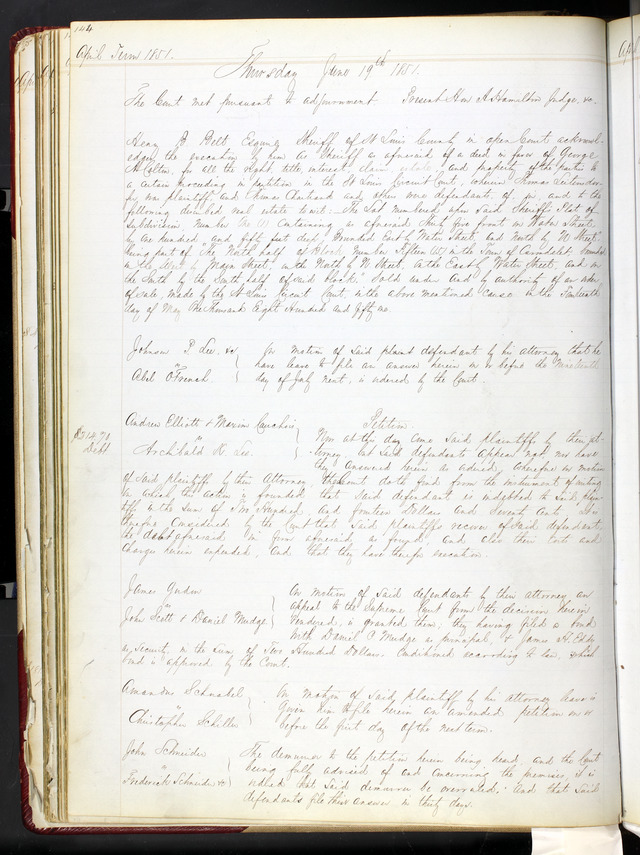 144
April Term 1851.
Thursday June 19th 1851.
The Court met pursuant to adjournment Present Hon A Hamilton Judge, &c.
Henry B Belt Esquire Sheriff of St Louis County in open Court acknowl-
edges the execution by him as Sheriff as aforesaid of a deed in favor of George
W Colton, for all the right, title, interest, claim, estate and property of the parties to
a certain proceeding in partition in the St Louis Circuit Court, wherein Thomas
for was plaintiff and Thomas and others were defendants, of in, and to the
following described real estate to wit: The Lot numbered upon said Sheriffs Plat of
Subdivision, number containing as aforesaid thirty five front on Water Street,
by one hundred and fifty feet deep, Bounded East by Water Street, and North by W Street
being part of "The North half" of Block Number fifteen (15) in the Town of Carondelet, bounded
on the West by Main Street, on the North by W Street, on the East by Water Street, and on
the South by the South half of said block." Sold under and by authority of an order
of sale, made by the St Louis Circuit Court, in the above mentioned cause on the
day of May One thousand Eight Hundred and fifty one.
Johnson P Lee. &c
"
Abel O French.
On motion of said defendant by his attorney that he
have leave to file an answer herein on or before the Nineteenth
day of July next, is ordered by the Court.
$214.70
Debt
Andrew Elliott &
"
Archibald R. Lee.
Petition.
Now at this day come said plaintiffs by their at-
torney, but said defendants appear not, nor have
they answered herein as advised, wherefore on motion
of said plaintiff by their Attorney, the Court doth find from the instrument of writing
on which this action is founded that said defendant is indebted to said plain-
tiffs in the sum of Two Hundred, and fourteen Dollars and Seventy Cents, It is
therefore Considered by the Court that said plaintiffs recover of said defendant,
the debt aforesaid in form aforesaid, as found, and also their costs and
charges herein expended, And that they have therefor execution.
James
"
John Scott & Daniel Mudge
On motion of said defendants by their attorney an
appeal to the Supreme Court from the decision herein
rendered, is granted them; they having filed a bond
with Daniel C Mudge as principal, & James H.
as Security, in the Sum of Two Hundred Dollars, Conditioned according to law, which
bond is approved by the Court.
Amandus Schnabel
"
Christopher Schiller
On motion of said plaintiff by his attorney leave is
given him to file herein an amended petition on or
before the first day of the next term.
John Schneider
"
Frederick Schneider &c
The demurrer to the petition herein being heard, and the Court
being fully advised of and concerning the premises, it is
ordered that said demurrer be overruled, And that said
defendants file their answer in thirty days.